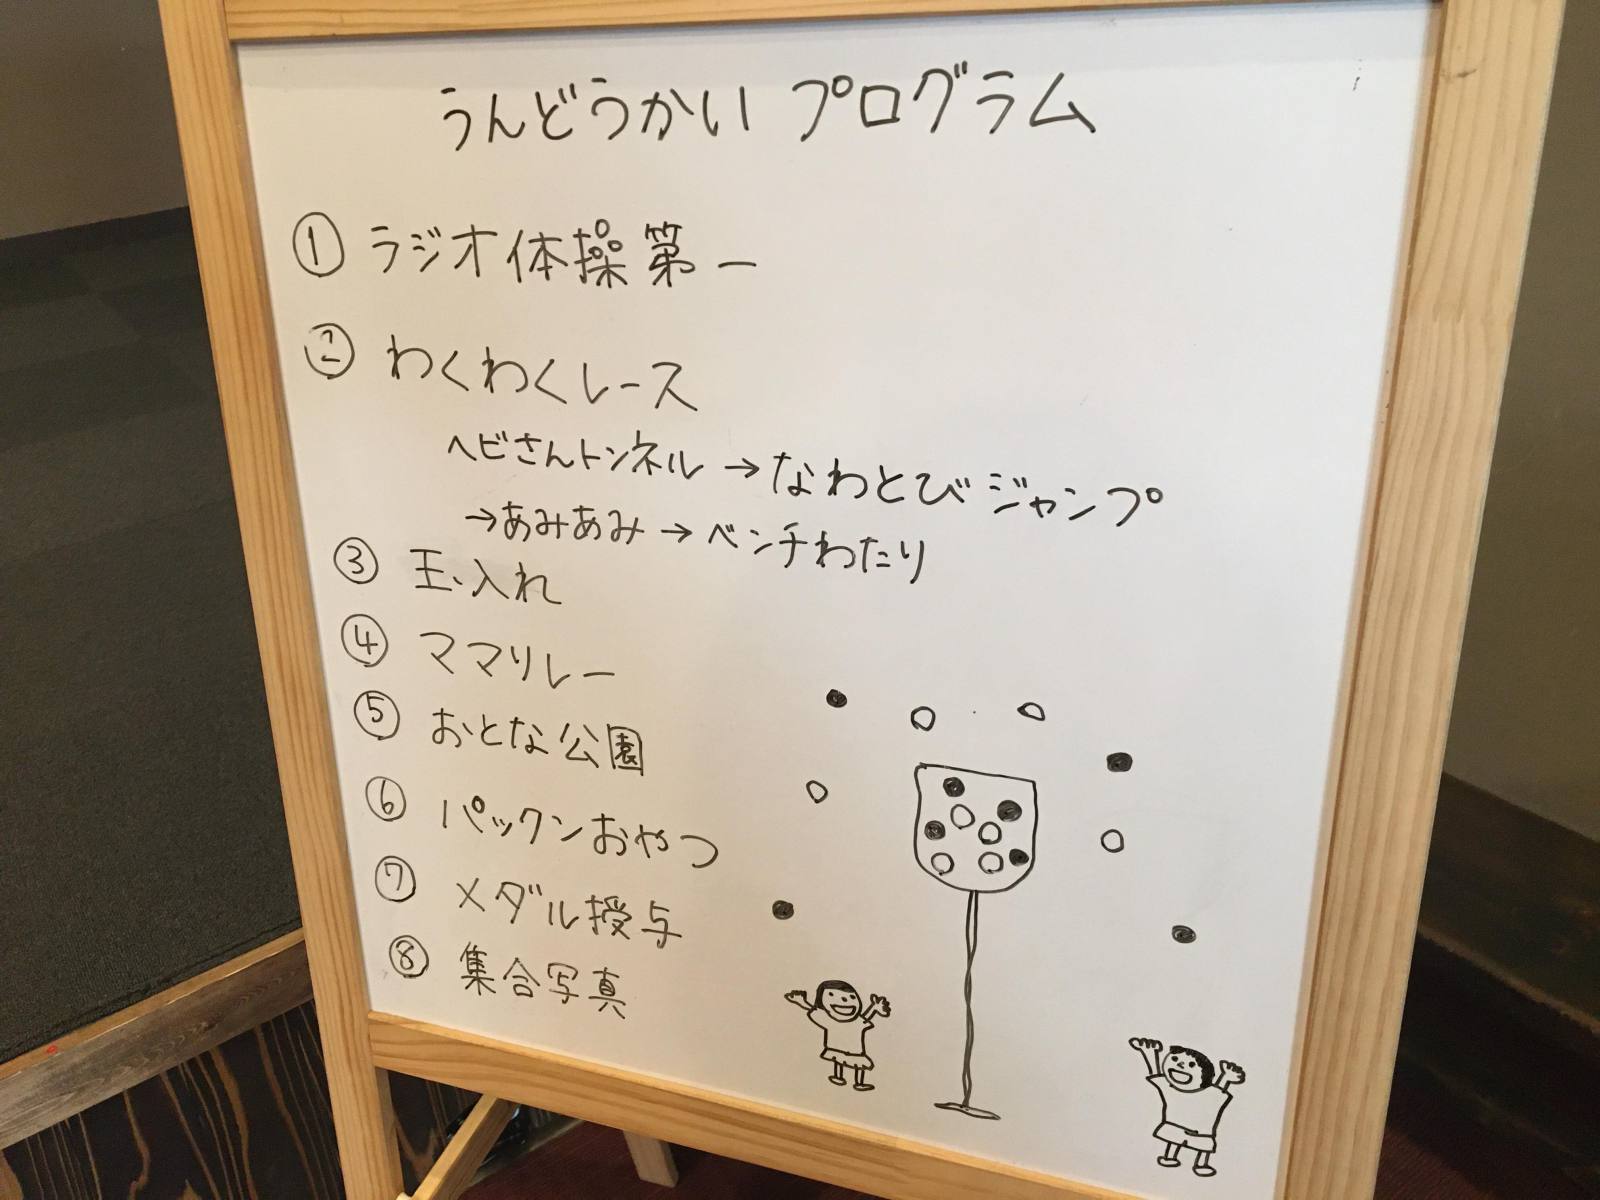 うんどうかい プログラム
① ラジオ体操第一
② わくわくレース
ヘビさんトンネル → なわとびジャンプ
→ あみあみ → ベンチわたり
③ 玉入れ
④ ママリレー
⑤ おとな公園
⑥ パックンおやつ
⑦ メダル授与
⑧ 集合写真